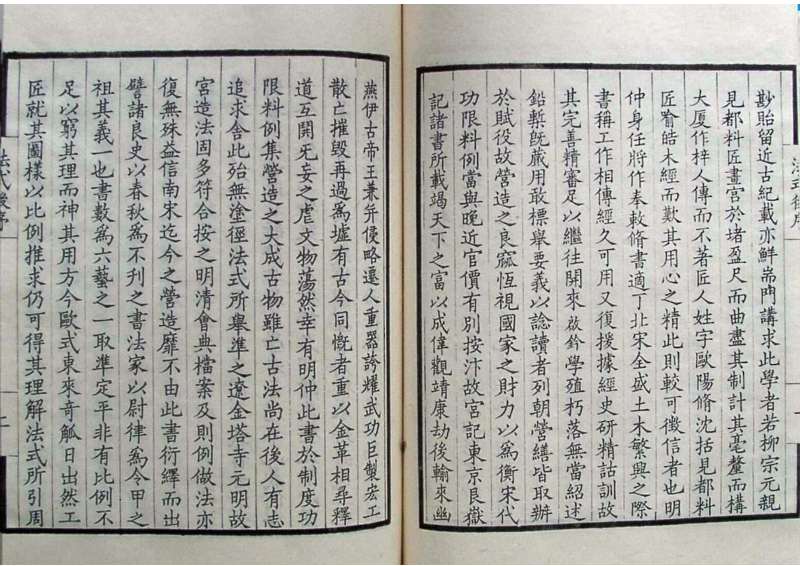 尠貽留近古紀載亦鮮耑門講求此學者若柳宗元親
見都料匠畫宮於堵盈尺而曲盡其制計其毫釐而構
大厦作梓人傳而不著匠人姓字歐陽脩沈括見都料
匠喻皓木經而歎其用心之精此則較可徵信者也明
仲身任將作奉敕脩書適丁北宋全盛土木繁興之際
書稱工作相傳經久可用又復援據經史研精詁訓故
其完善精審足以繼往開來啟鈐學殖朽落無當紹述
鉛槧旣蕆用敢標舉要義以諗讀者列朝營繕皆取辦
於賦役故營造之良窳恆視國家之財力以爲衡宋代
功限料例當與晚近官價有別按汴故宮記東京艮嶽
記諸書所載竭天下之富以成偉觀靖康劫後輸來幽
燕伊古帝王兼并侵略遷人重器誇耀武功巨製宏工
散亡摧毀再過爲墟有古今同慨者重以金革相尋釋
道互開旡妄之虐文物蕩然幸有明仲此書於制度功
限料例集營造之大成古物雖亡古法尚在後人有志
追求舍此殆無塗徑法式所舉準之遼金塔寺元明故
宮造法固多符合按之明清會典檔案及則例做法亦
復無殊益信南宋迄今之營造靡不由此書衍繹而出
譬諸良史以春秋爲不刊之書法家以尉律爲令甲之
祖其義一也書數爲六藝之一取準定平非有比例不
足以窮其理而神其用方今歐式東來奇觚日出然工
匠就其圖樣以比例推求仍可得其理解法式所引周